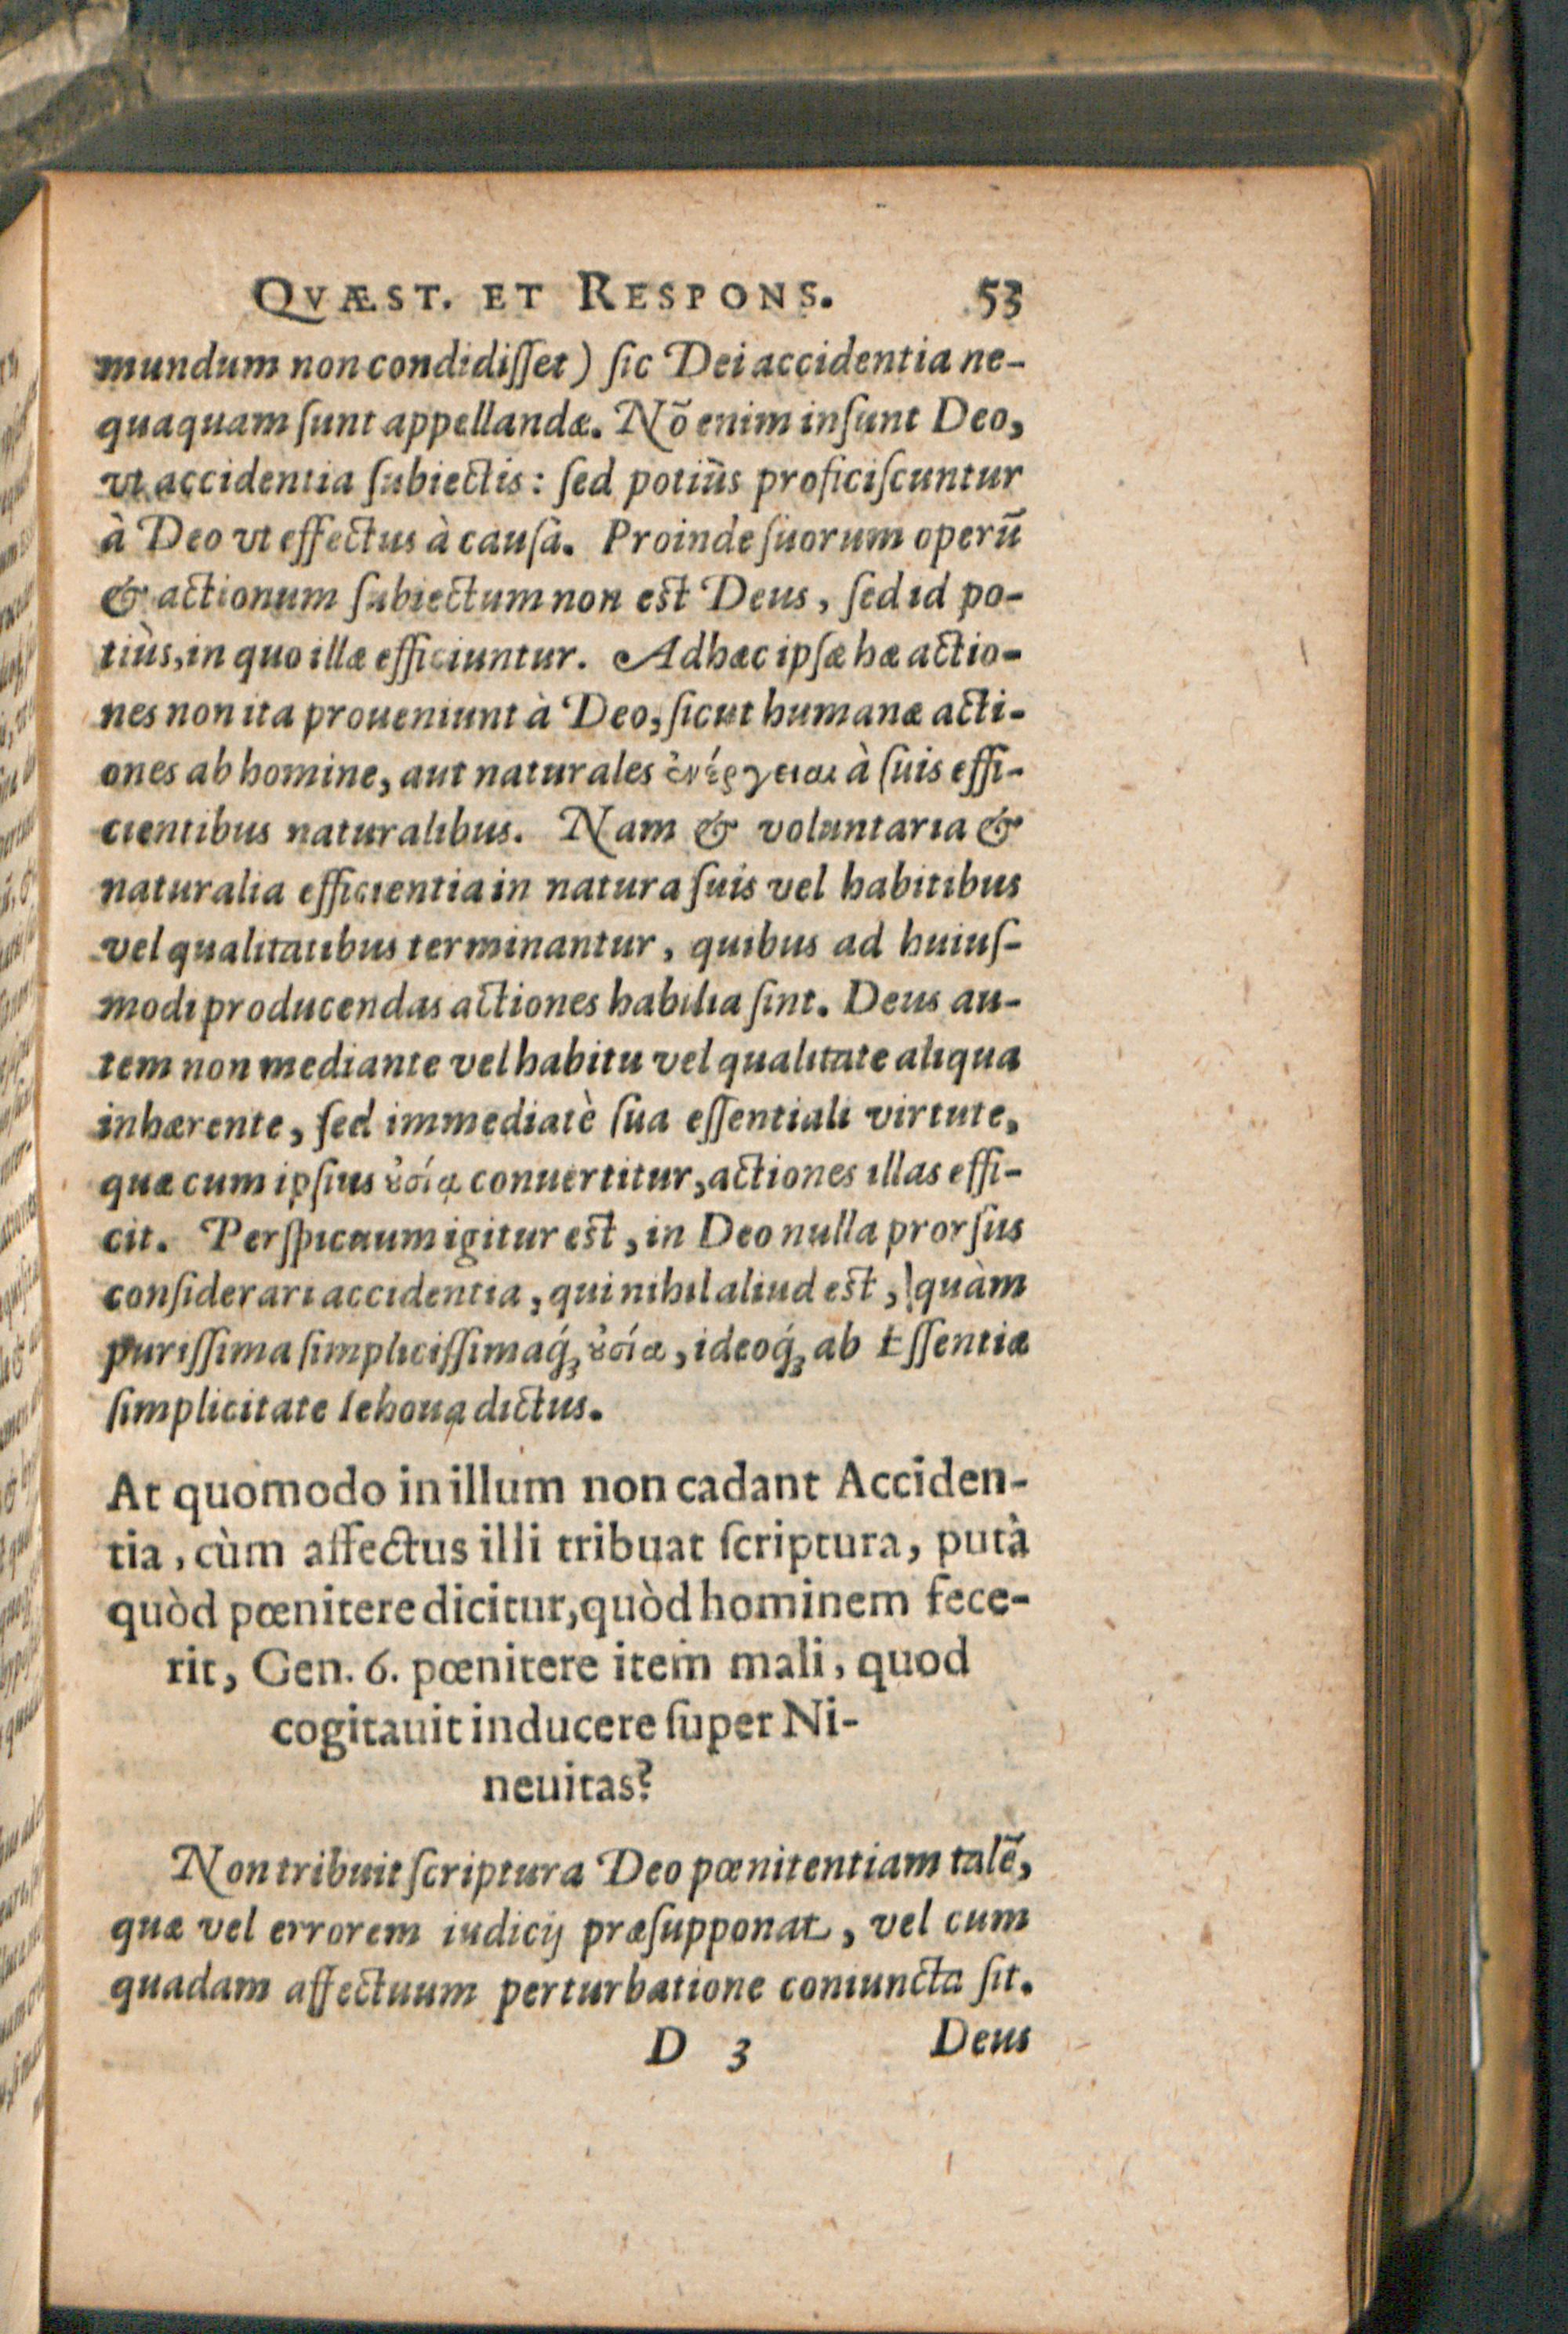 QVÆST. ET RESPONS. 53
mundum non condidiſſet) ſic Dei accidentia ne-
quaquam ſunt appellandæ. Nõ enim inſunt Deo,
vt accidentia ſubiectis: ſed potiùs proficiſcuntur
à Deo vt effectus à causâ. Proinde ſuorum operū
& actionum ſubiectum non est Deus, ſed id po-
tiùs, in quo illæ efficiuntur. Ad hæc ipſæ hæ actio-
nes non ita proueniunt à Deo, ſicut humanæ acti-
ones ab homine, aut naturales ἐνέργειαι à ſuis effi-
cientibus naturalibus. Nam & voluntaria &
naturalia efficientia in natura ſuis vel habitibus
vel qualitatibus terminantur, quibus ad huiuſ-
modi producendas actiones habilia ſint. Deus au-
tem non mediante vel habitu vel qualitate aliqua
inhærente, ſed immediatè ſua eſſentiali virtute,
quæ cum ipſius ȣ̓σίᾳ conuertitur, actiones illas effi-
cit. Perſpicuum igitur est, in Deo nulla prorſus
conſiderari accidentia, qui nihil aliud est, quàm
puriſſima ſimpliciſſimaq́; ȣ̓σία, ideoq́; ab Eſſentiæ
ſimplicitate Iehoua dictus.
At quomodo in illum non cadant Acciden-
tia, cùm affectus illi tribuat ſcriptura, putà
quòd pœnitere dicitur, quòd hominem fece-
rit, Gen. 6. pœnitere item mali, quod
cogitauit inducere ſuper Ni-
neuitas?
Non tribuit ſcriptura Deo pœnitentiam talē,
quæ vel errorem iudicij præſupponat, vel cum
quadam affectuum perturbatione coniuncta ſit.
D 3 Deus